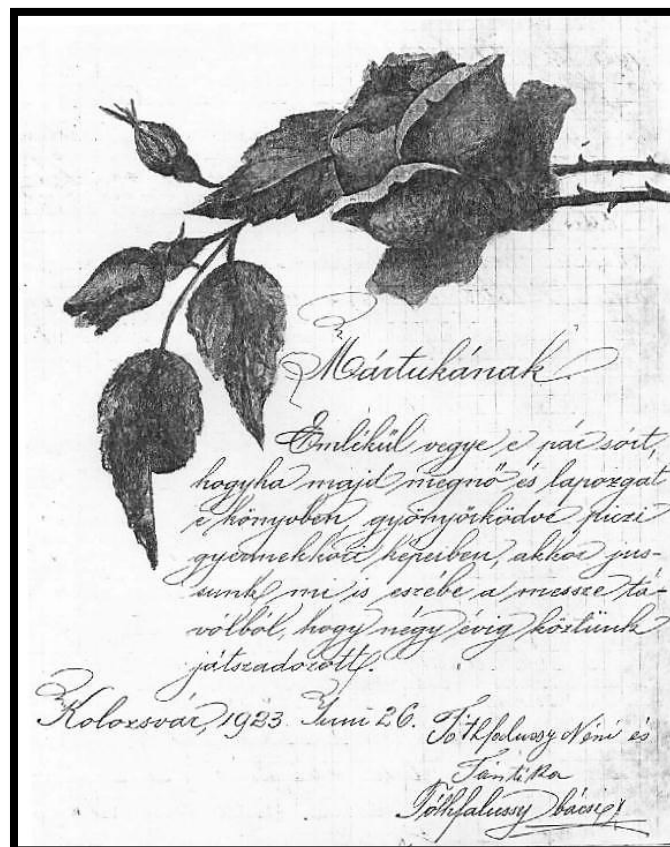 Mártukának.
Emlékül vegye e pár sort,
hogyha majd megnő és lapozgat
e könyvben, gyönyörködve piczi
gyermekkori képeiben, akkor jus-
sunk mi is eszébe a messze tá-
volból, hogy négy évig köztünk
játszadozott.
Kolozsvár, 1923. Juni 26.
Tóthfalussy Néni és
Tóthfalussy bácsi